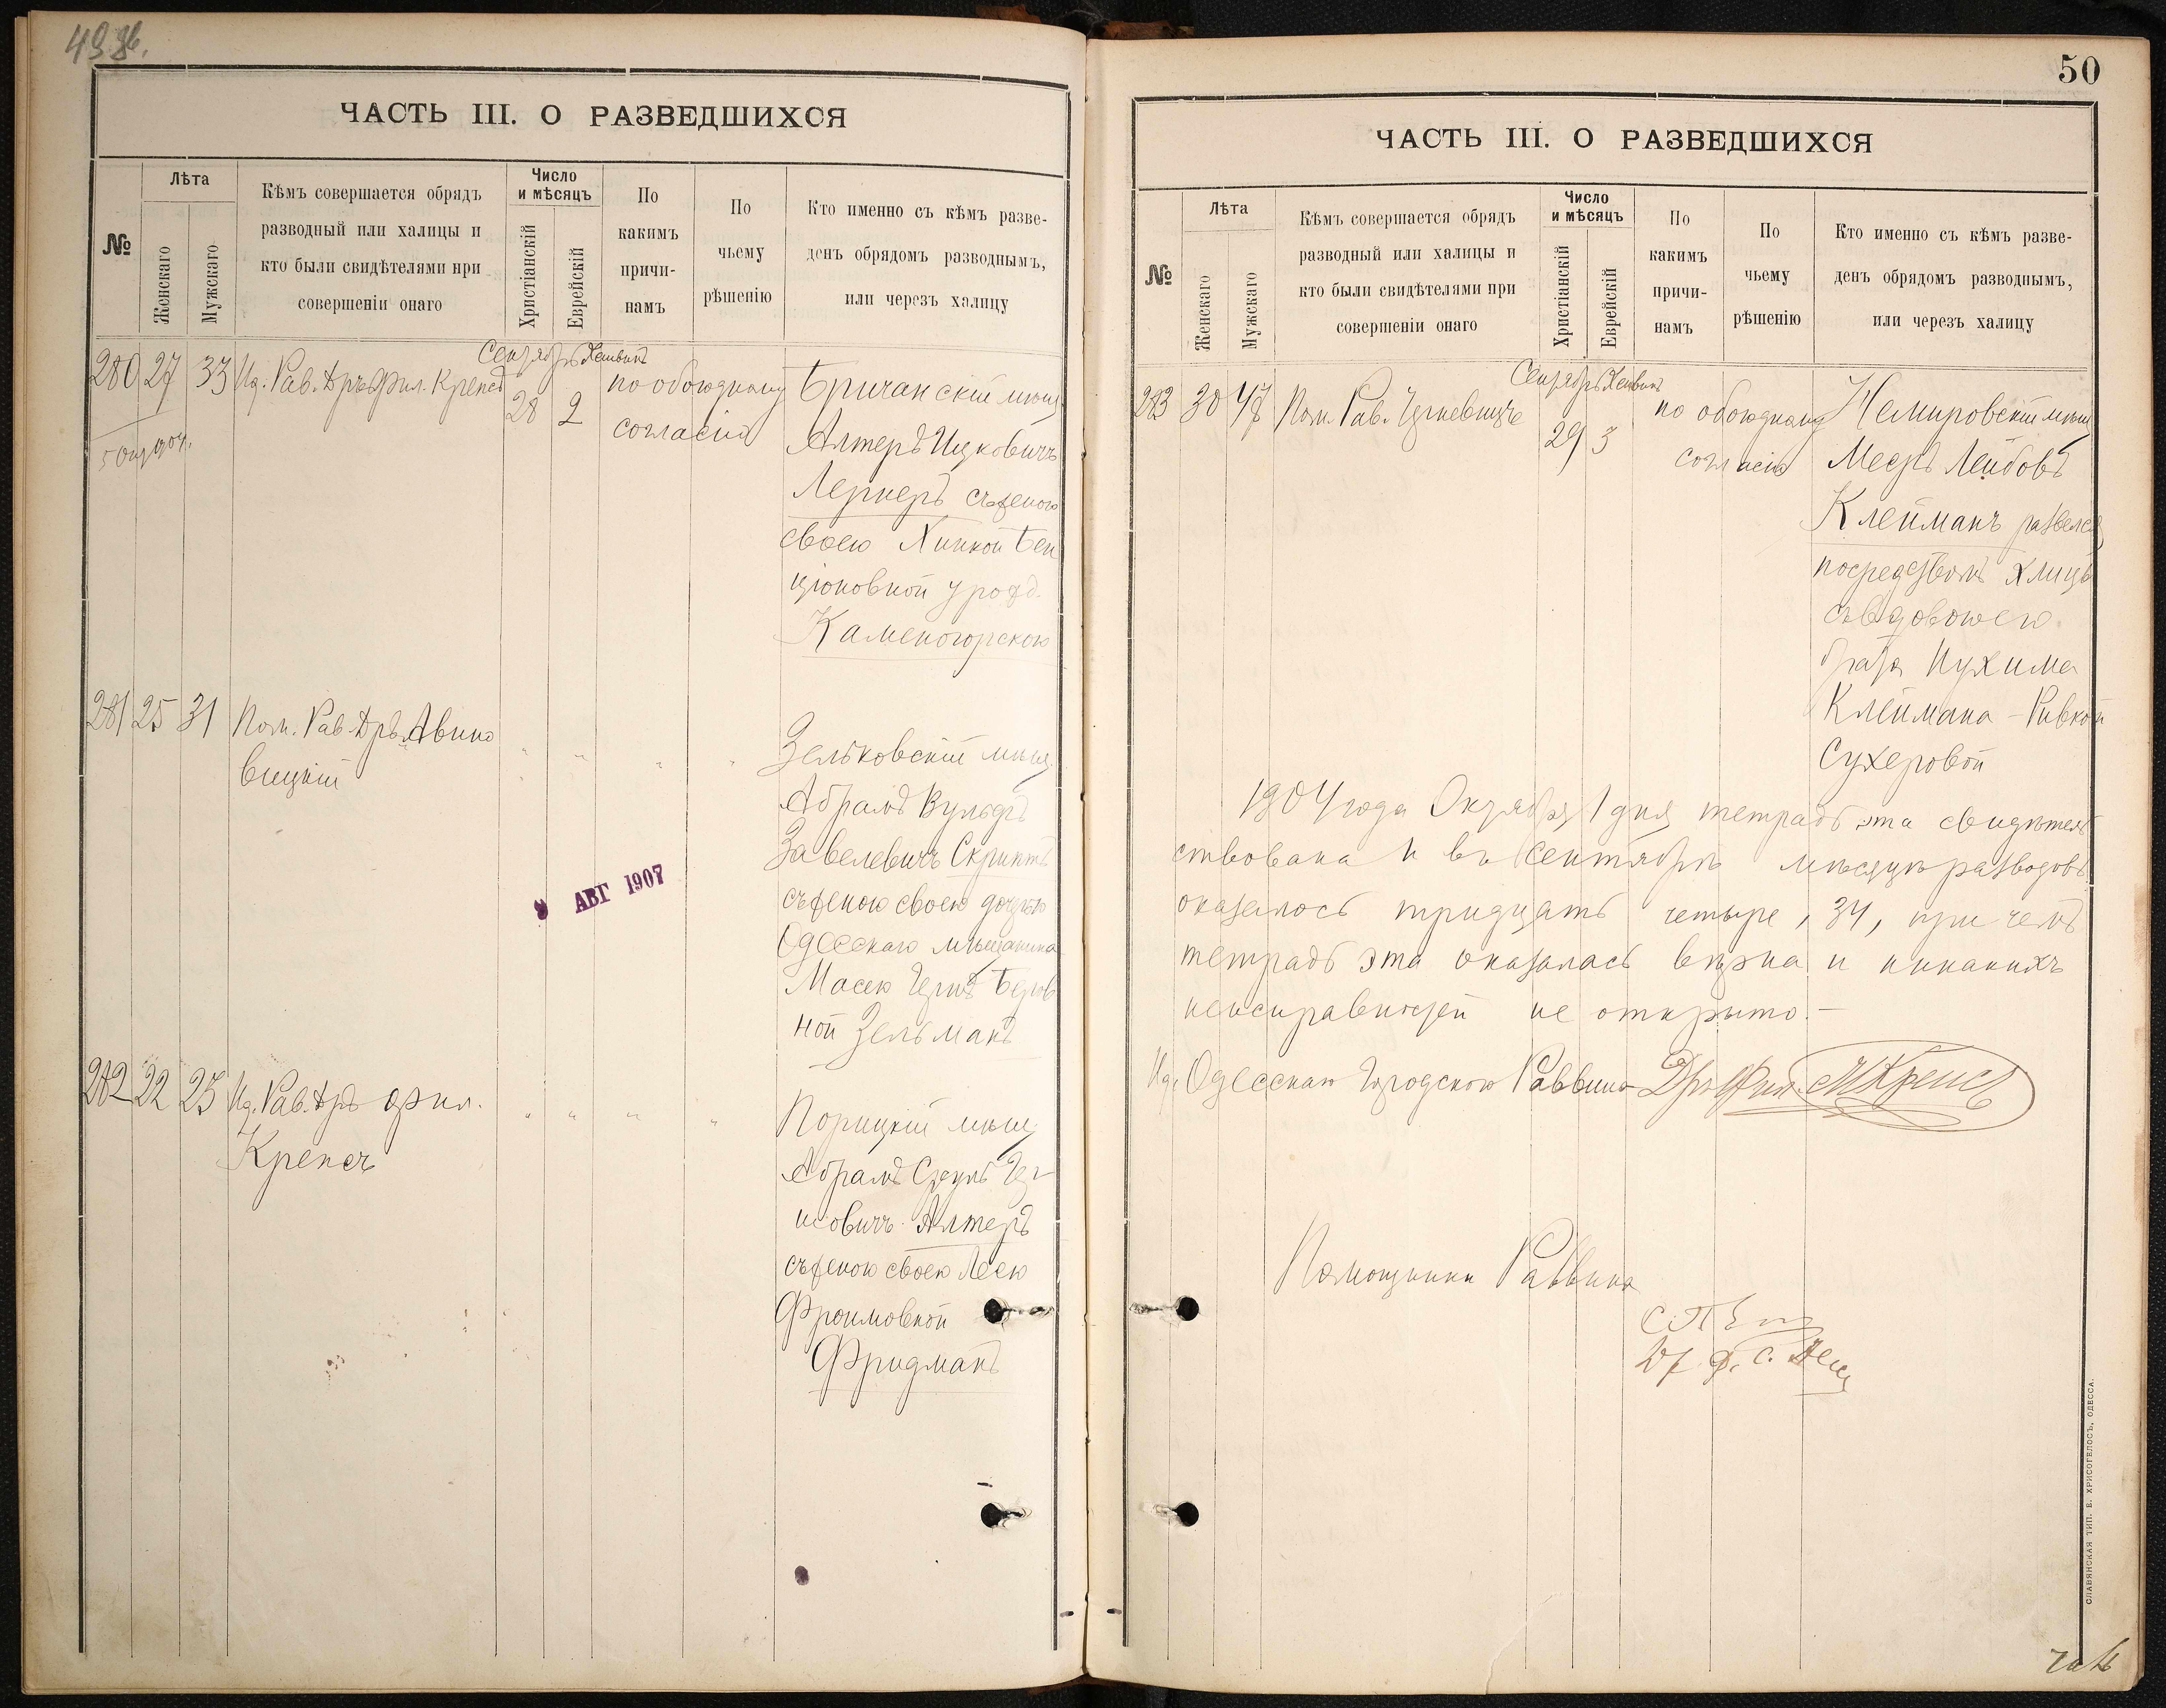 49 об.
ЧАСТЬ III. О РАЗВЕДШИХСЯ
№
Лѣта
Женскаго
Мужскаго
Кѣмъ совершается обрядъ
разводный или халицы и
кто были свидѣтелями при
совершеніи онаго
Число
и мѣсяцъ
Христіанскій
Еврейскій
По
какимъ
причи-
намъ
По
чьему
рѣшенію
Кто именно съ кѣмъ разве-
денъ обрядомъ разводнымъ,
или черезъ халицу
Сентябрь Хешвинъ
280 27 33 Ид. Рав. Дръ Фил. Крепсъ 28 2 по обоюдному
согласію
5 Окт 904.
Бричанскій мѣщ
Алтеръ Ицковичъ
Лернеръ съ женою
своею Хинкой Бен
ціоновной урожд.
Каменогорскою
281 25 31 Пом. Рав. Дръ Авино
вицкій
" " " "
Зельковскій мѣщ
Абрамъ Вульфъ
Завелевичъ Скриптъ
съ женою своею дочерью
Одесскаго мѣщанина
Масею Беров
ной Зельманъ
8 АВГ 1907
282 22 25 Ид. Рав. Дръ Фил.
Крепсъ
" " " "
Порицкій мѣщ
Абрамъ Сруль Гер
шовичъ Алтеръ
съ женою своею Леею
Фроимовной
Фридманъ
50
ЧАСТЬ III. О РАЗВЕДШИХСЯ
№
Лѣта
Женскаго
Мужскаго
Кѣмъ совершается обрядъ
разводный или халицы и
кто были свидѣтелями при
совершеніи онаго
Число
и мѣсяцъ
Христіанскій
Еврейскій
По
какимъ
причи-
намъ
По
чьему
рѣшенію
Кто именно съ кѣмъ разве-
денъ обрядомъ разводнымъ,
или черезъ халицу
Сентябрь Хешвинъ
283 30 48 Пом. Рав. 29 3 по обоюдному
согласію
Немировскій мѣщ
Мееръ Лейбовъ
Клейманъ развелся
посредствомъ хлицы
съ вдовою его
брата Нухима
Клеймана - Ривкой
Сухеровой
1904 года Октября 1 дня тетрадь эта свидѣтель
ствована и въ сентябрѣ мѣсяцѣ разводовъ
оказалось тридцать четыре, 34, при чемъ
тетрадь эта оказалась вѣрна и никакихъ
неисправностей не открыто. -
Ид. Одесскаго Городского Раввина Дръ Фил. Крепсъ
Помощники Раввина
СЛАВЯНСКАЯ ТИП. Е. ХРИСОГЕЛОСЪ, ОДЕССА.